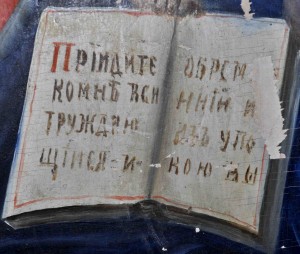 Прїидите
ко мнѣ вси
труждаю
щїися и
обрем
ннїи и
азъ упо
кою вы